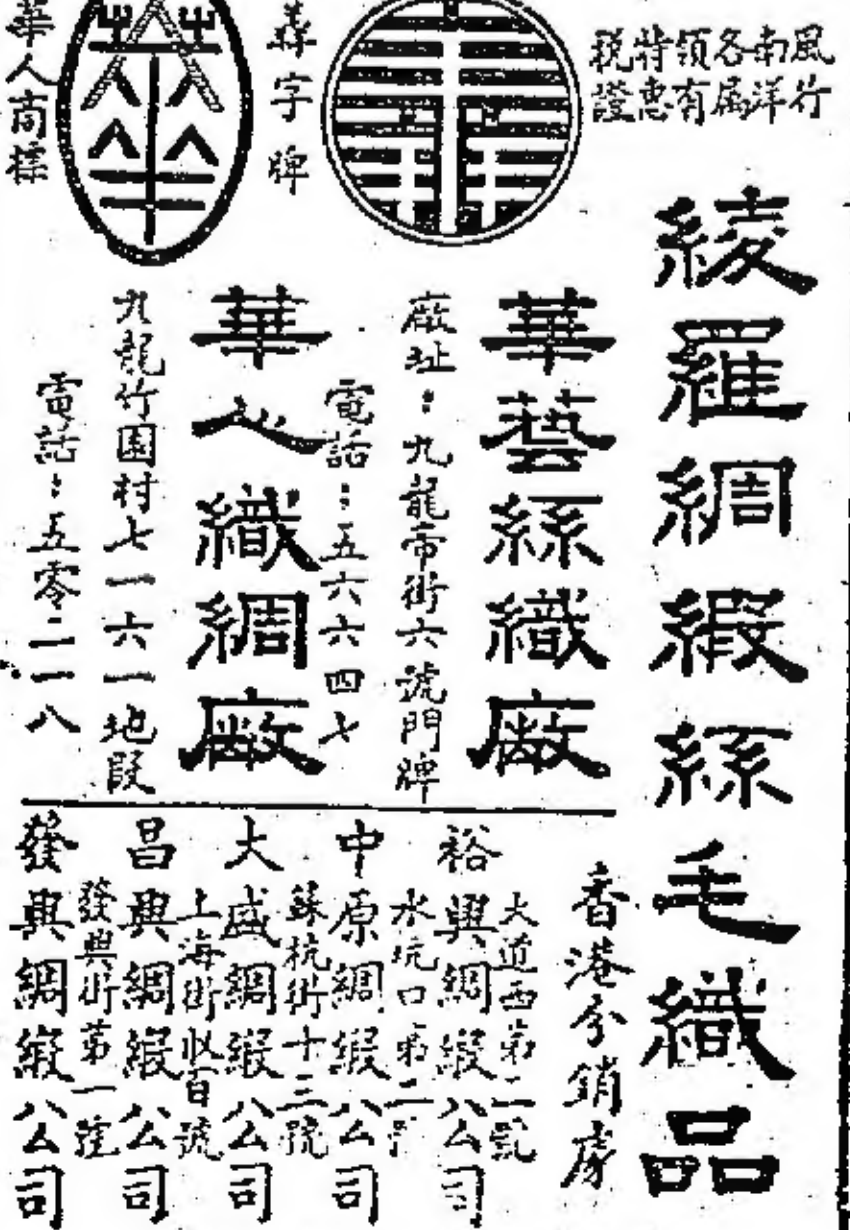 風行
南洋
各屬
領有
特惠
稅證
綾羅綢緞絲毛織品
字牌
華人商標
華藝絲織廠
廠址：九龍帝街六號門牌
電話：五六六四七
華人織綢廠
九龍竹園村七一六一地段
電話：五零二一八
香港分銷處
大道西第二號
裕興綢緞公司
水坑口第二
中原綢緞公司
蘇杭街十三號
大盛綢緞公司
上海街百號
昌興綢緞公司
發興街第一號
發興綢緞公司